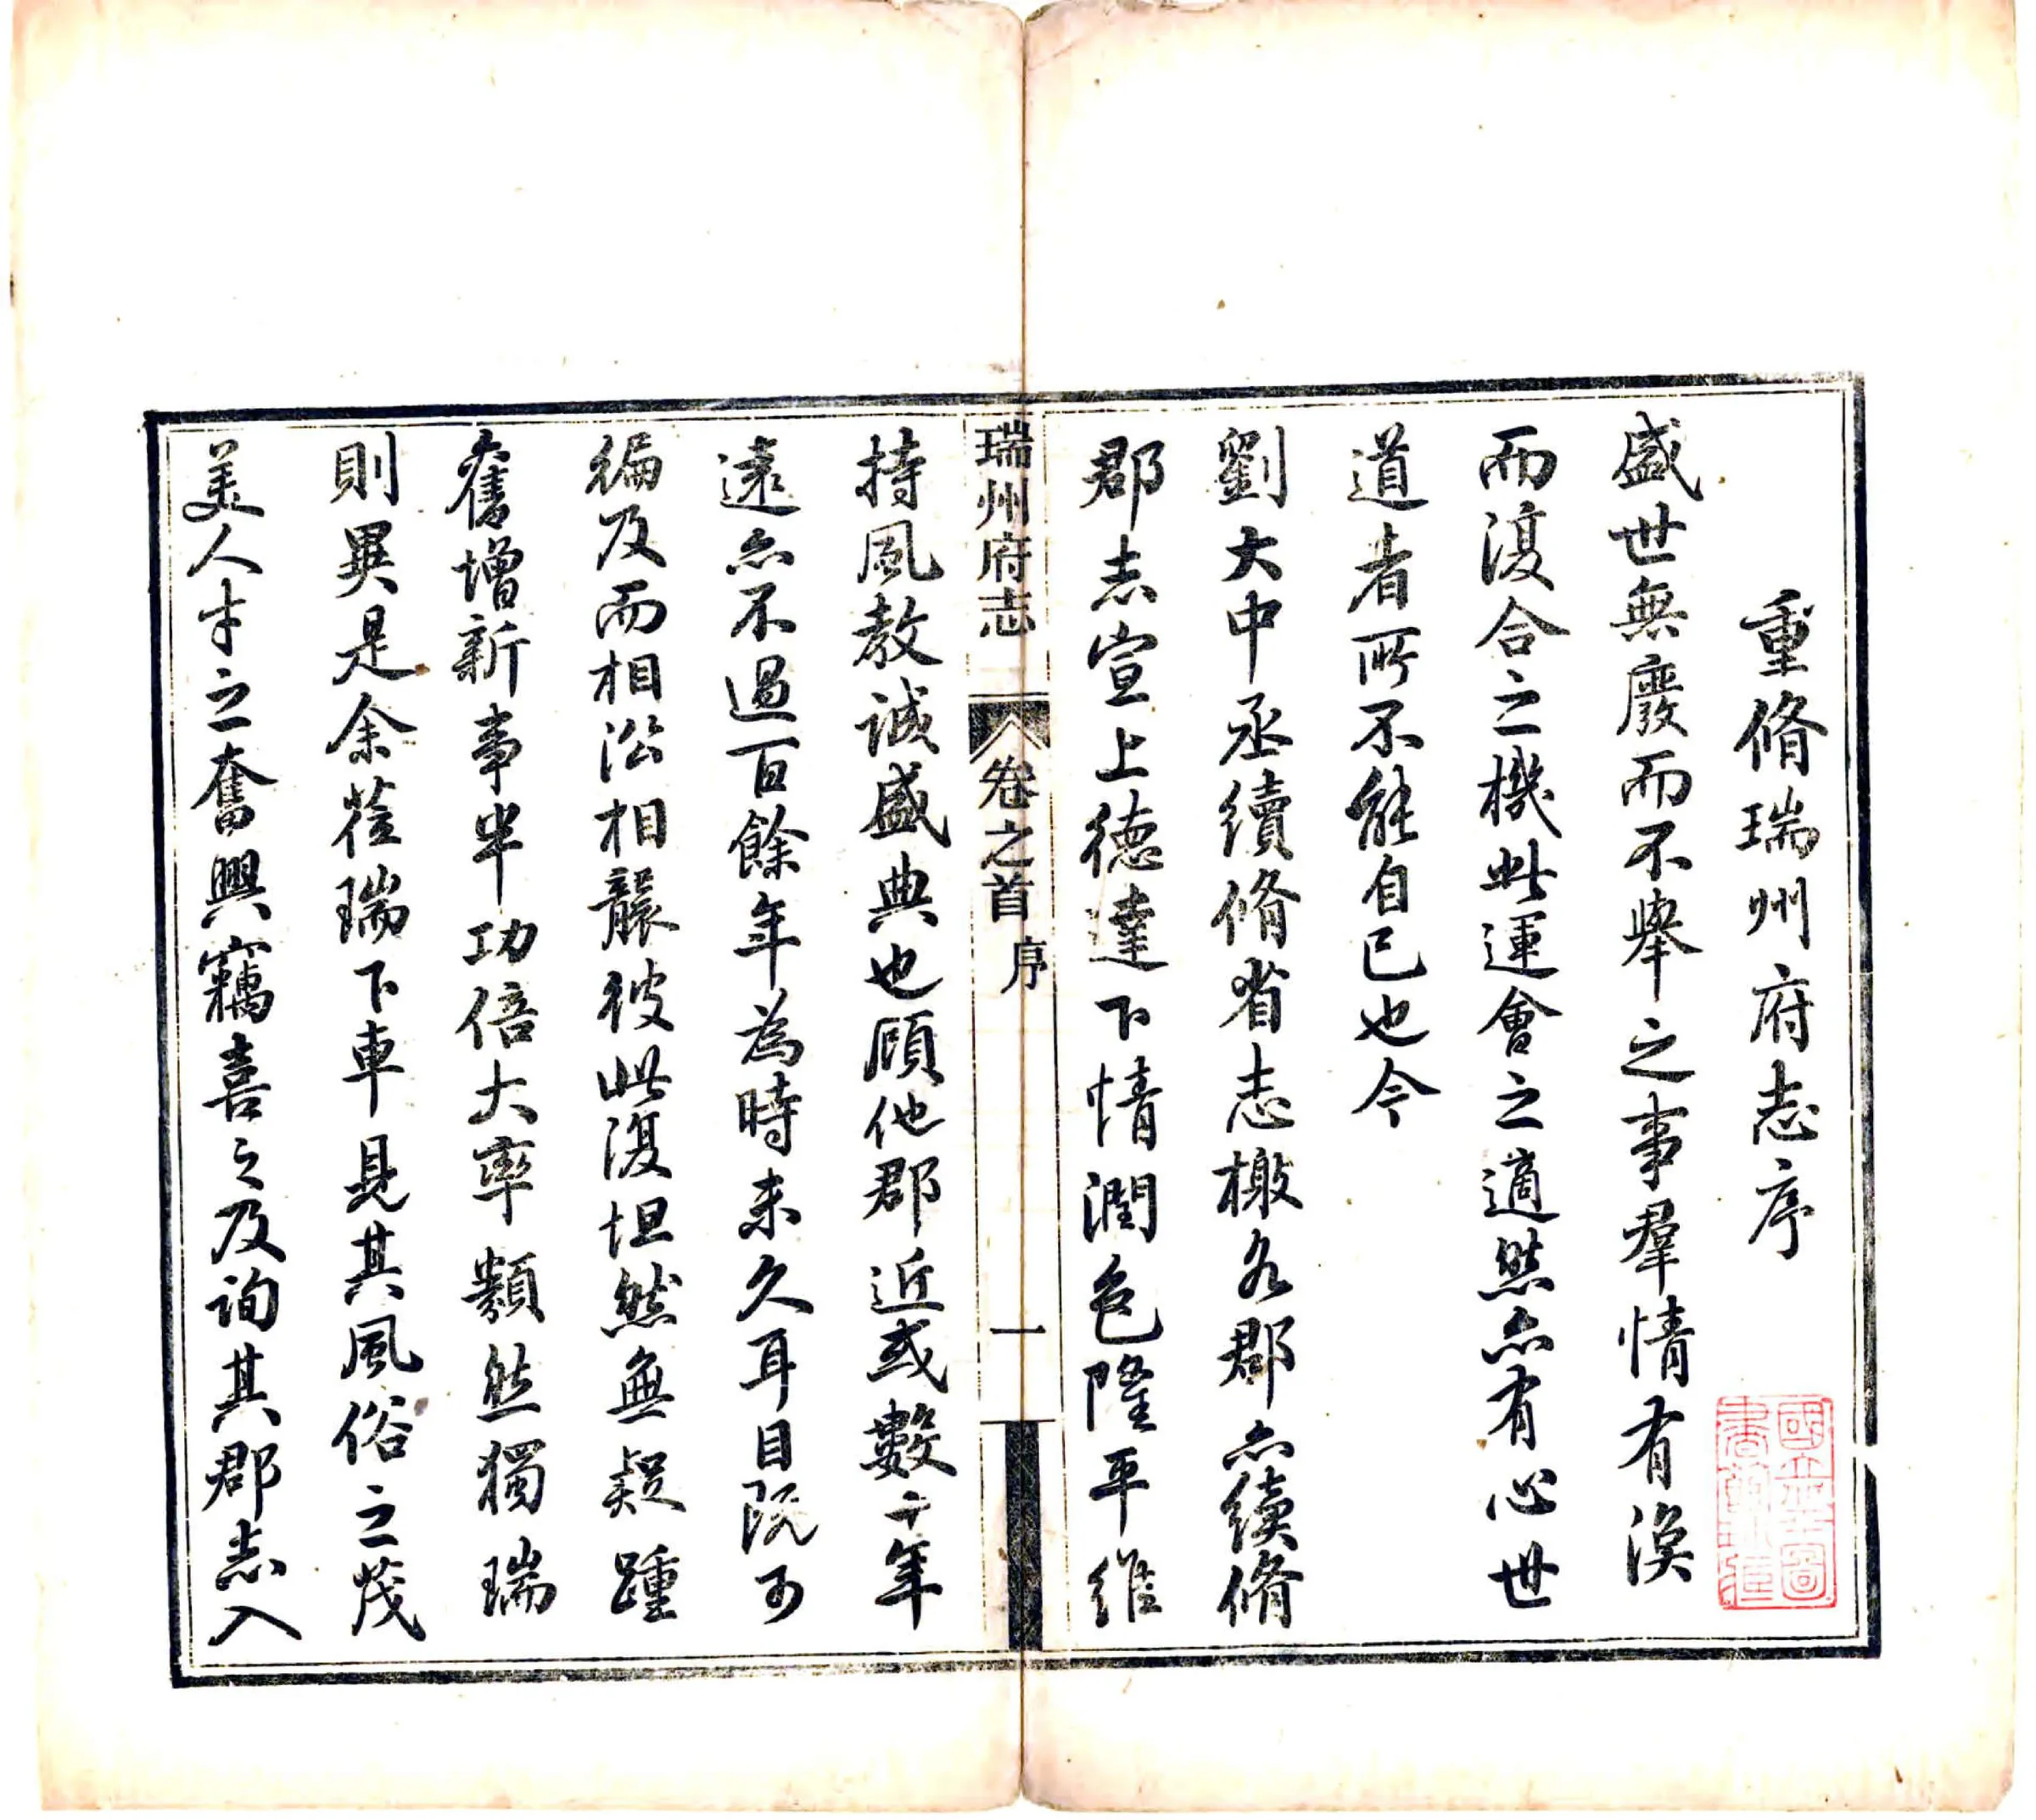 重脩瑞州府志序
盛世無廢而不舉之事羣情有渙
而復合之機此運會之適然亦有心世
道者所不能自已也今
劉大中丞續脩省志檄各郡亦續脩
郡志宣上德達下情潤色隆平維
瑞州府志 卷之首 序 一
持風教誠盛典也顧他郡近或數十年
遠亦不過百餘年為時未久耳目既可
徧及而相沿相襲彼此復坦然無疑踵
舊增新事半功倍大率類然獨瑞
則異是余蒞瑞下車見其風俗之茂
美人才之奮興竊喜之及詢其郡志入